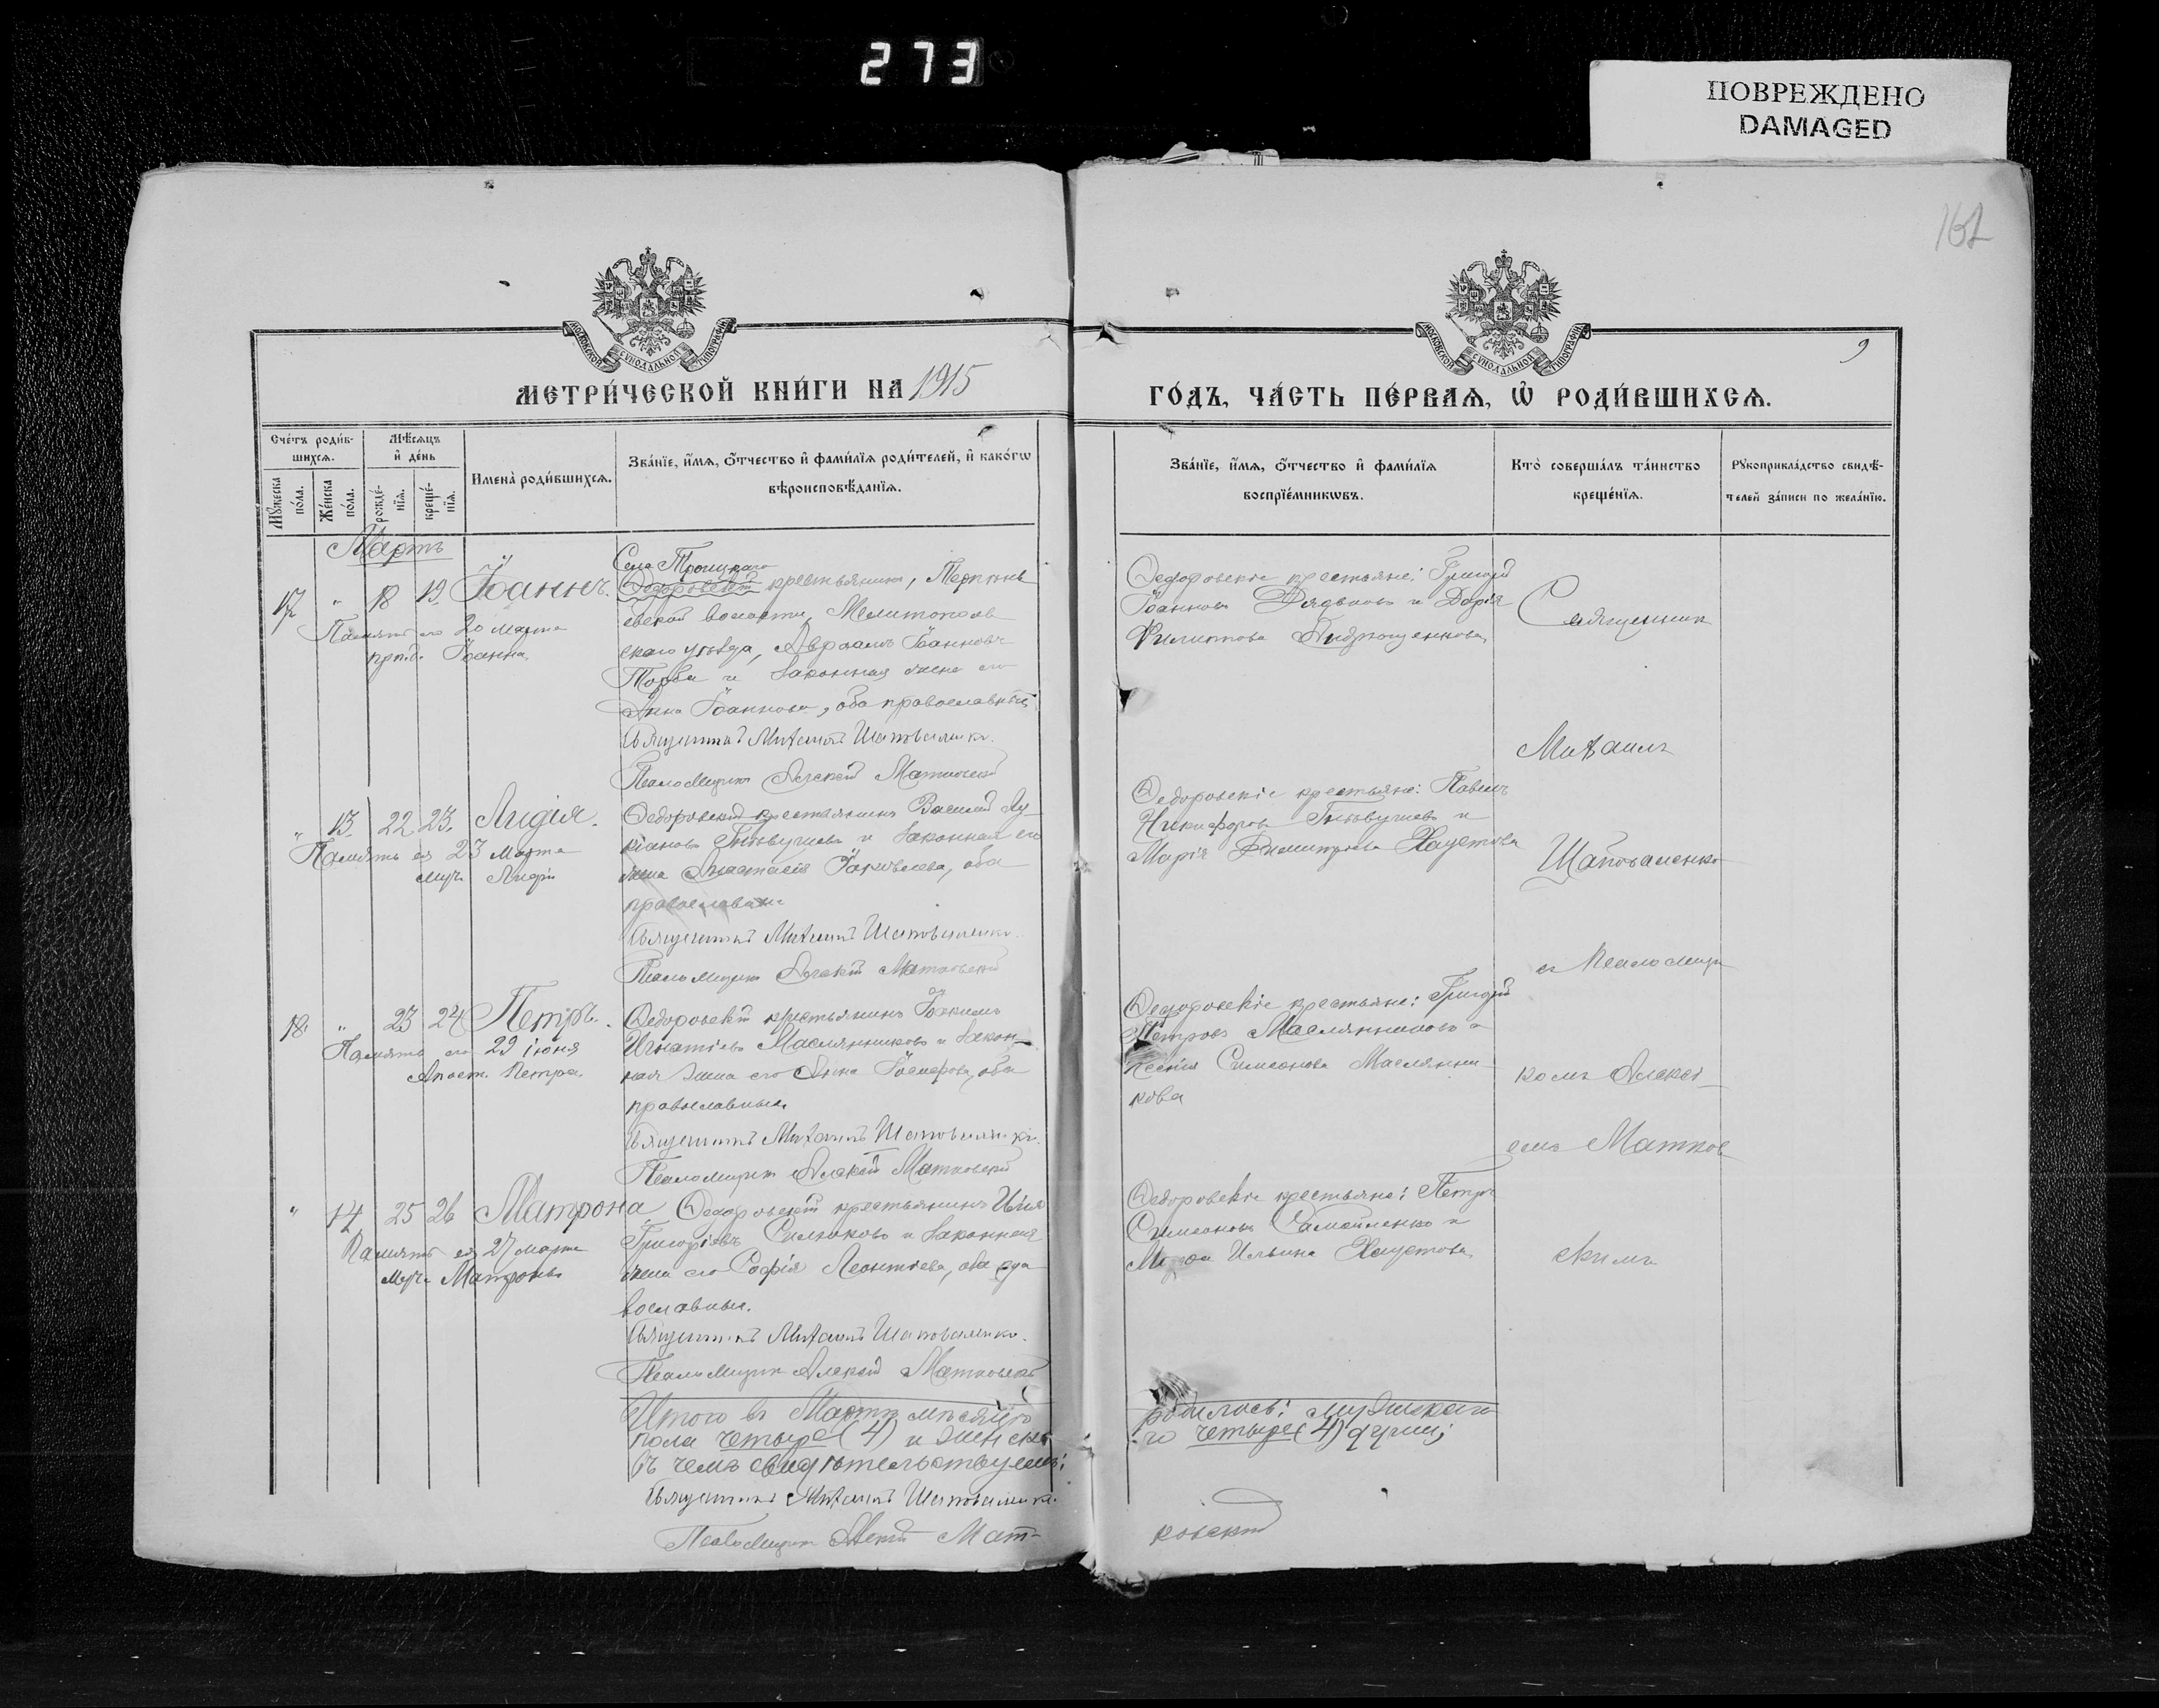 273
ПОВРЕЖДЕНО
DAMAGED
161
9
МОСКОВСКОЙ СУНОДАЛЬНОЙ ТИПОГРАФІИ
МОСКОВСКОЙ СУНОДАЛЬНОЙ ТИПОГРАФІИ
МЕТРИ́ЧЕСКОЙ КНИ́ГИ НА 1915
ГО́ДЪ, ЧА́СТЬ ПЕ́РВАѦ, Ѡ҆ РОДИ́ВШИХСѦ.
Сче́тъ роди́в-
шихсѧ.
Мѣ́сѧцъ
и҆ де́нь
Мꙋ́жеска
по́ла.
Же́нска
по́ла.
рожде́-
нїѧ.
креще́-
нїѧ.
Имена̀ роди́вшихсѧ.
Зва́нїе, и҆́мѧ, ѻ҆́тчество и҆ фами́лїѧ роди́телей, и҆ како́гѡ
вѣроисповѣ́данїѧ.
Зва́нїе, и҆́мѧ, ѻ҆́тчество и҆ фами́лїѧ
воспрїе́мникѡвъ.
Кто̀ соверша́лъ та́инство
креще́нїѧ.
Рꙋкоприкла́дство свидѣ́-
телей за́писи по жела́нїю.
Мартъ
17 " 18 19 Іоаннъ.
Память его 20 марта
прп. Іоанна.
Села Троицкаго
Ѳедоровскій крестьянинъ,
евской волости, Мелитополь
скаго уѣзда, Авраамъ Іоанновъ
Торба и законная жена его
Анна Іоаннова, оба православные
Священникъ Михаилъ Шаповаленко.
Псаломщикъ Алексій Матковскій
Ѳедоровскіе крестьяне: Григорій
Іоанновъ Дядьковъ и Дарія
Филиппова Андрющенкова
Священник
Михаилъ
" 13 22 23. Лидія.
Память ея 23 марта
муч. Лидіи
Ѳедоровскій крестьянинъ Василій Лу-
кіановъ и законная его
жена Анастасія Іаковлева, оба
православные
Священникъ Михаилъ Шаповаленко.
Псаломщикъ Алексій Матковскій
Ѳедоровскіе крестьяне: Павелъ
Никифоровъ и
Марія Димитріева Хаустова
Шаповаленко
съ Псаломщи
18 " 23 24 Петръ.
Память его 29 іюня
Апост. Петра
Ѳедоровскій крестьянинъ Іоакимъ
Игнатіевъ Маслянниковъ и закон-
ная жена его Анна Іосифова, оба
православные.
Священникъ Михаилъ Шаповаленко.
Псаломщикъ Алексій Матковскій
Ѳедоровскіе крестьяне: Григорій
Петровъ Маслянниковъ и
Симеонова Маслянни-
кова
комъ Алексі-
емъ Матков-
" 14 25 26 Матрона
Память ея 27 марта
муч. Матроны
Ѳедоровскій крестьянинъ Илія
Григоріевъ Силюковъ и законная
жена его Софія Леонтіева, оба пра
вославные.
Священникъ Михаилъ Шаповаленко.
Псаломщикъ Алексій Матковскій
Ѳедоровскіе крестьяне: Петръ
Симеоновъ Самойленко и
Ильина Хаустова
скимъ
Итого въ Мартѣ мѣсяцѣ родилось: мужскаго
пола четыре (4) и женска го четыре (4) души;
въ чемъ свидѣтельствуемъ:
Священникъ Михаилъ Шаповаленко.
Псаломщикъ Алексій Мат- ковскій